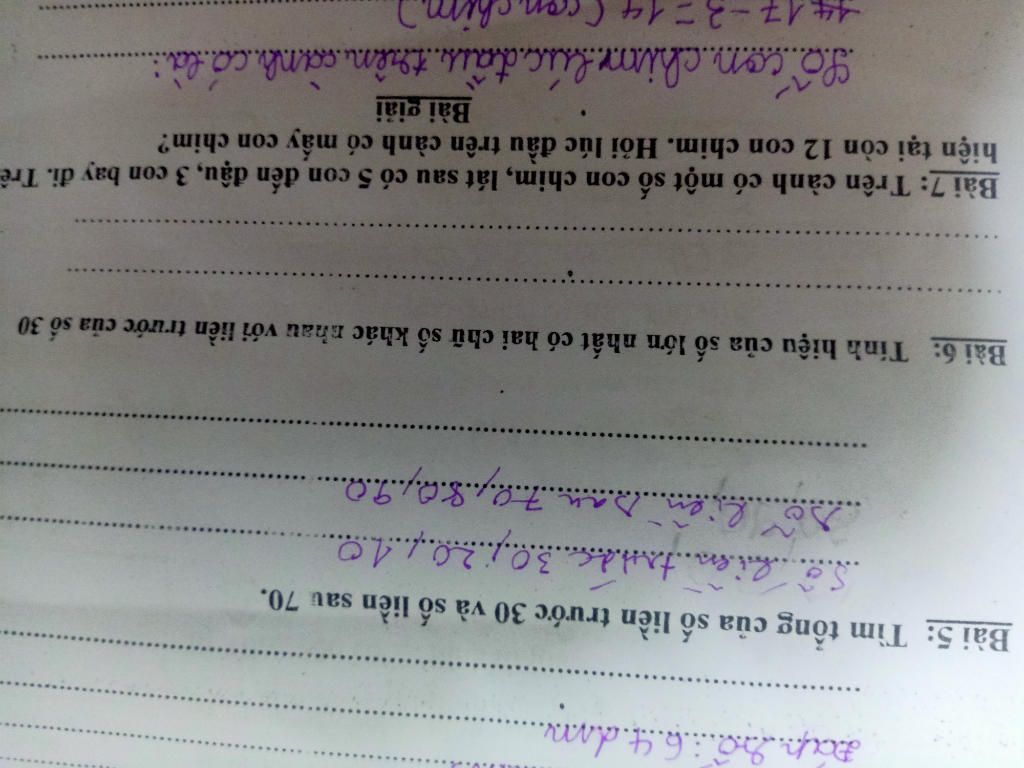 Đáp số: 64 dm
Bài 5: Tìm tổng của số liền trước 30 và số liền sau 70.
Số liền trước 30, 20, 10
số liền sau 70, 80, 90
Bài 6: Tính hiệu của số lớn nhất có hai chữ số khác nhau với liền trước của số 30
Bài 7: Trên cành có một số con chim, lát sau có 5 con đến đậu, 3 con bay đi. Trê
hiện tại còn 12 con chim. Hỏi lúc đầu trên cành có mấy con chim?
Bài giải
Số con chim lúc đầu trên cành có là:
17 - 3 = 14 (con chim)